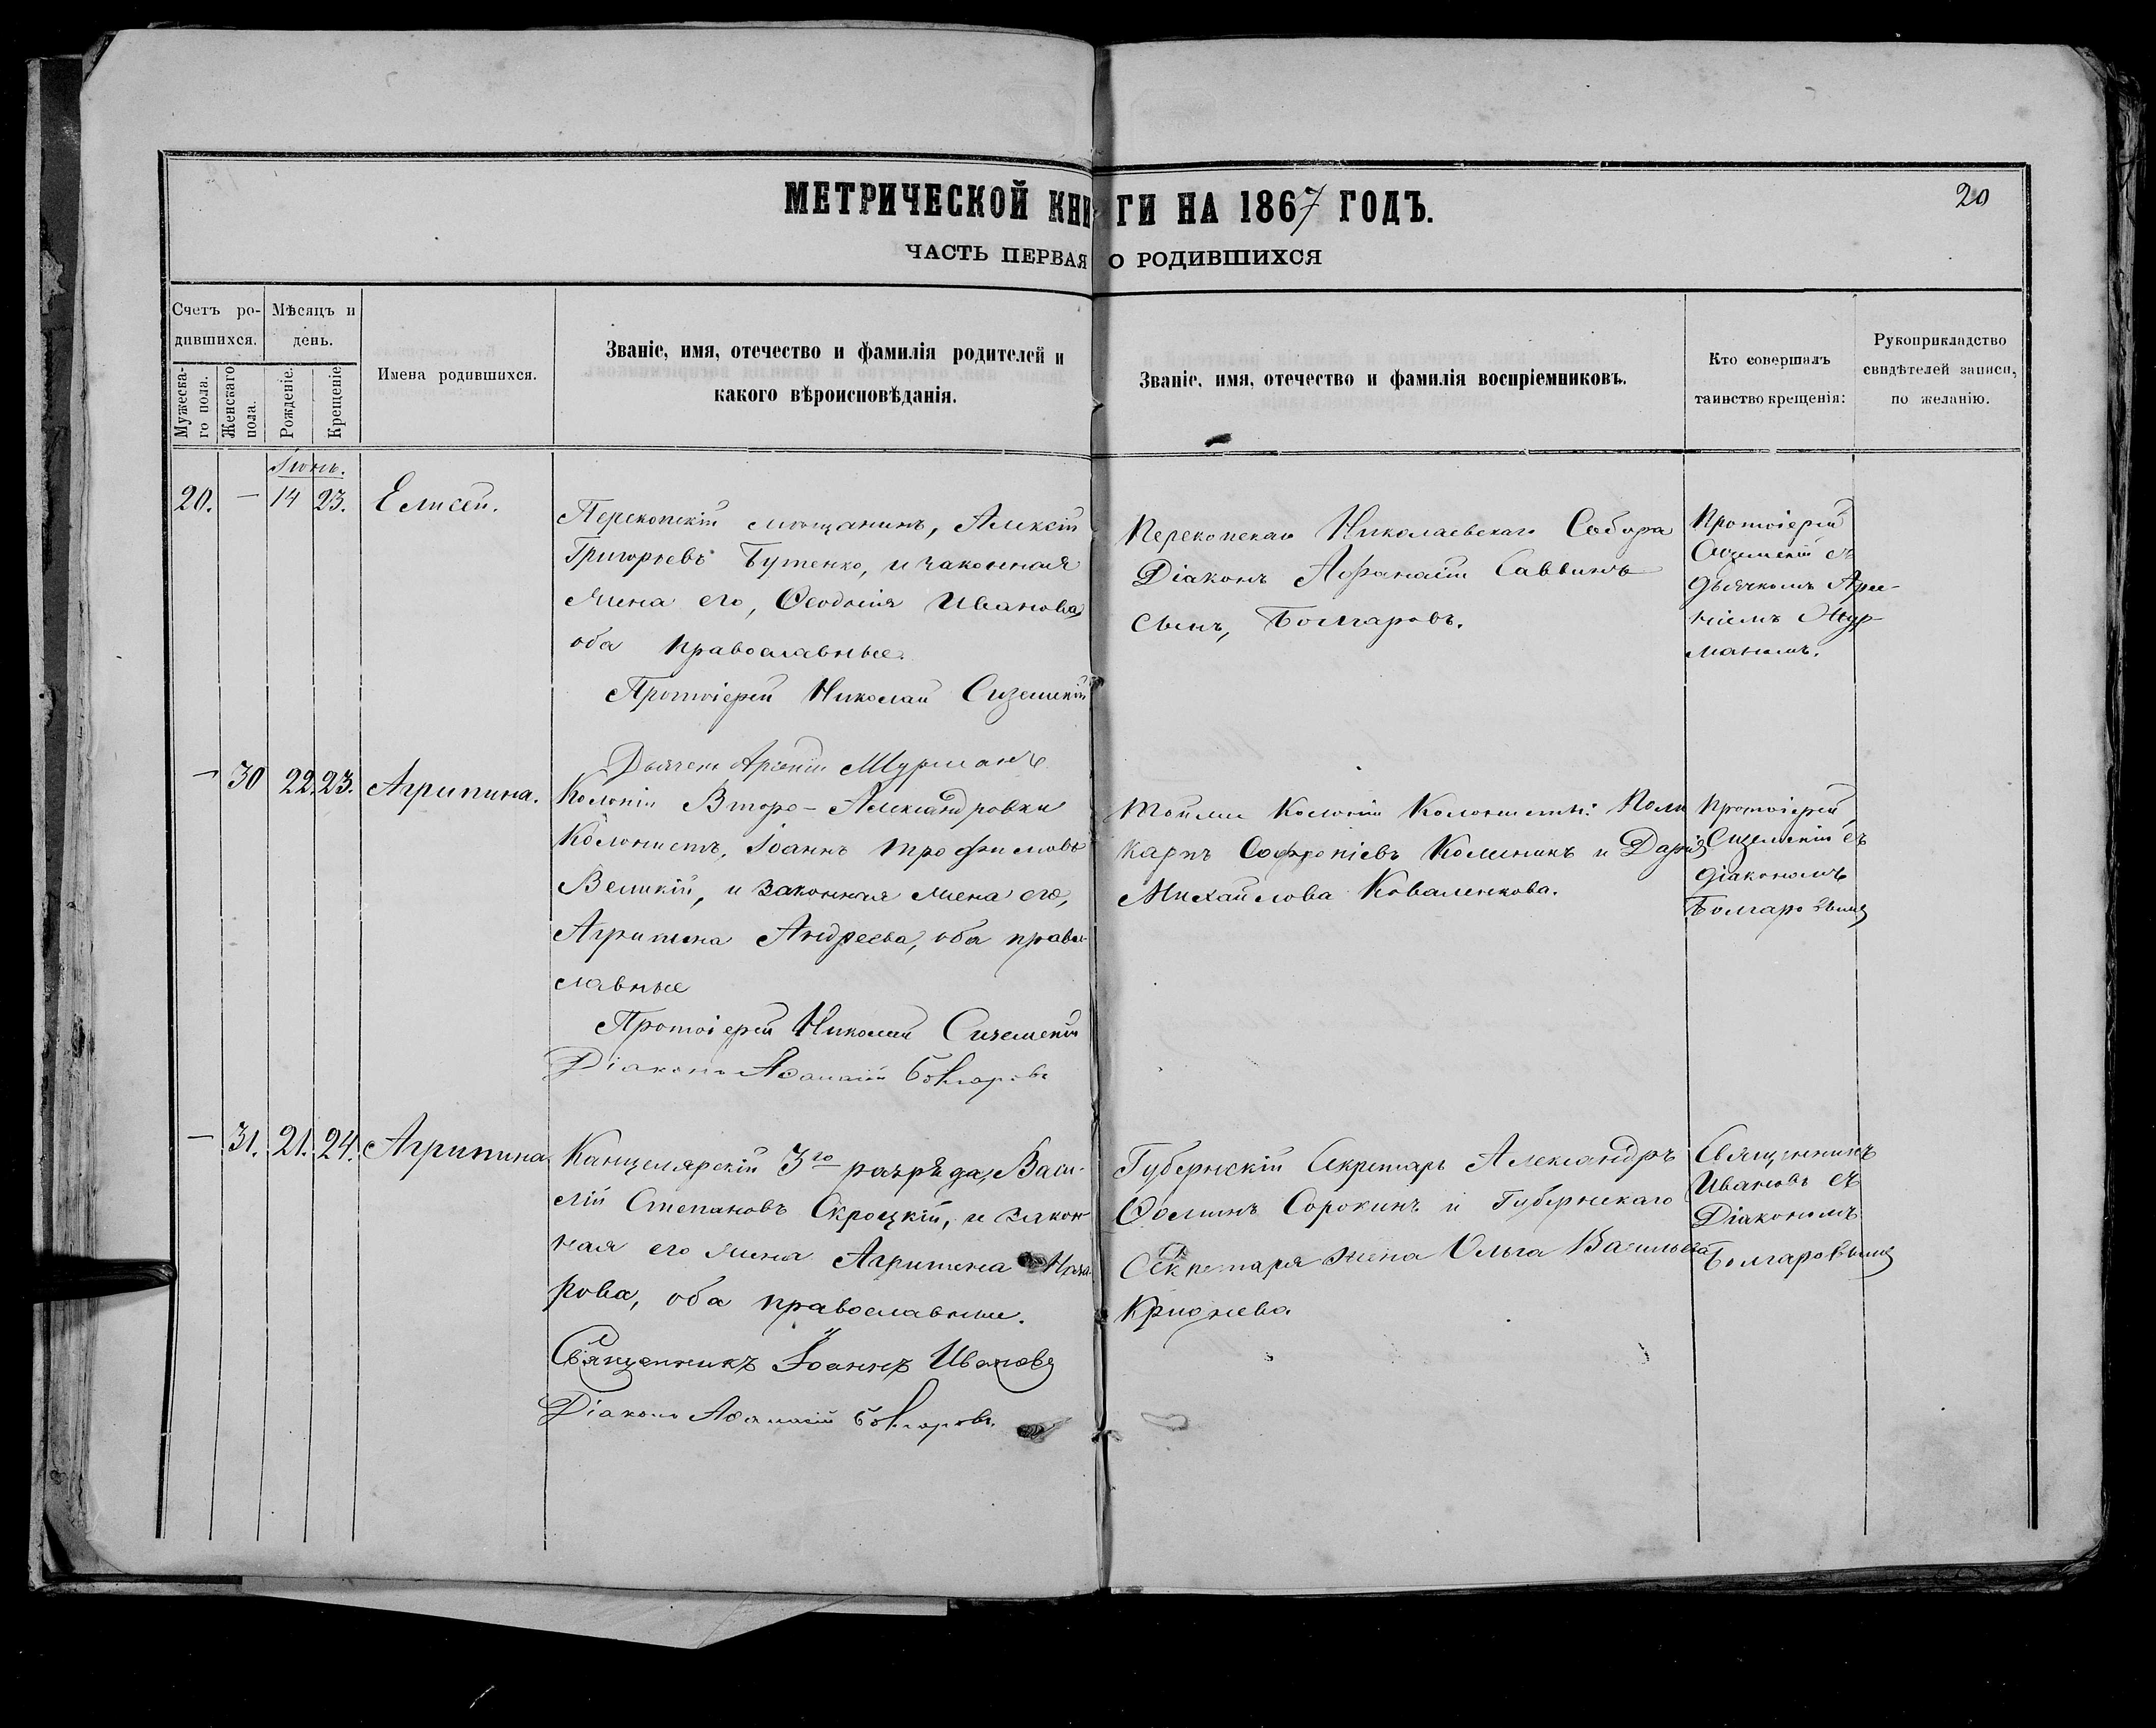 20
МЕТРИЧЕСКОЙ КНИГИ НА 1867 ГОДЪ.
ЧАСТЬ ПЕРВАЯ О РОДИВШИХСЯ
Счетъ ро-
дившихся.
Мужеска-
го пола.
Женскаго
пола.
Мѣсяцъ и
день.
Рожденіе.
Крещеніе
Имена родившихся.
Званіе, имя, отечество и фамилія родителей и
какого вѣроисповѣданія.
Званіе, имя, отечество и фамилія воспріемниковъ.
Кто совершалъ
таинство крещенія:
Рукоприкладство
свидѣтелей записи,
по желанію.
Іюнь.
20. — 14 23. Елисей.
Перекопскій мѣщанинъ, Алексій
Григорьевъ Бутенко, и законная
жена его, Ѳеодосія Иванова,
оба православные.
Протоіерей Николай Сиземскій
Дьячекъ Арсеній Шурманъ
Перекопскаго Николаевскаго Собора
Діаконъ Афанасій Саввинъ
сынъ, Болгаровъ.
Протоіерей
Сиземскій съ
дьячкомъ Арсе-
ніемъ Шур-
маномъ.
— 30 22. 23. Агрипина.
Колоніи Второ-Александровки
Колонистъ, Іоаннъ Трофимовъ
Великій, и законная жена его,
Агрипина Андреева, оба право-
славные
Протоіерей Николай Сиземскій
Діаконъ Аѳанасій Болгаровъ
Тойже Колоніи Колонисты: Поли
карпъ Софроніевъ Колиникъ и Дарія
Михайлова Коваленкова.
Протоіерей
Сиземскій съ
діакономъ
Болгаровымъ
— 31. 21. 24. Агрипина
Канцелярскій 3го разряда, Васи-
лій Степановъ Скроцкій, и закон
ная его жена Агрипина
рова, оба православные.
Священникъ Іоаннъ Ивановъ
Діаконъ Аѳанасій Болгаровъ.
Губернскій Секретарь Александръ
Ѳоминъ Сорокинъ и Губернскаго
Секретаря жена Ольга Васильева
Священникъ
Ивановъ съ
Діакономъ
Болгаровымъ